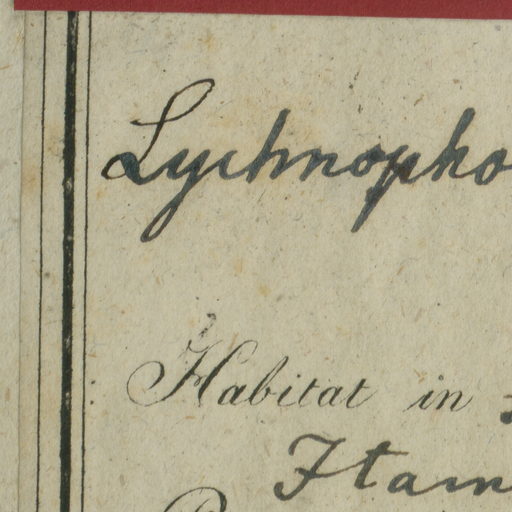 Lychnopho
Habitat in
Itam